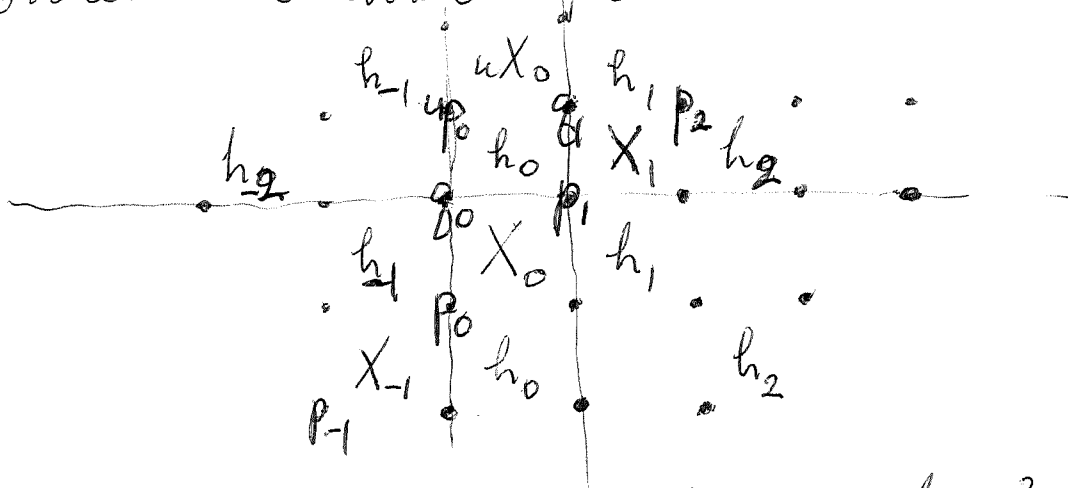 uX₀
h₋₁ h₁
up₀ q₁ p₂
h₋₂ h₀ X₁ h₂
q₀ p₁
h₋₁ X₀ h₁
p₀
X₋₁ h₀ h₂
p₋₁